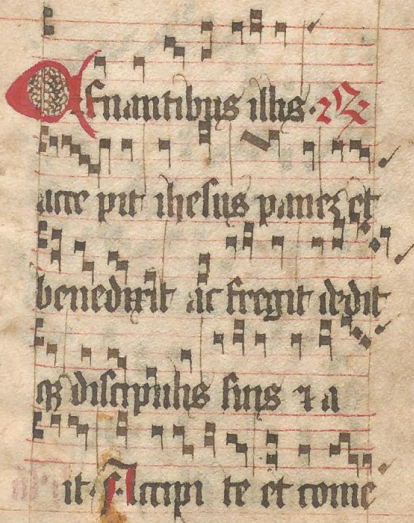 Cenantibus illis. R
acce pit ihesus panez et
benedixit ac fregit dedit
qz discipulis suis ⁊ a
it. Acci pi te et come